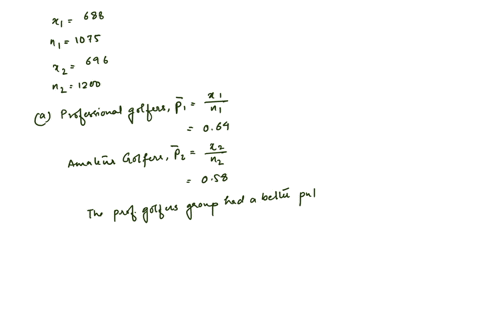 x₁ = 688
n₁ = 1075
x₂ = 696
n₂ = 1200
(a) Professional golfers, p̄₁ = x₁/n₁
= 0.64
Amateur Golfers, p̄₂ = x₂/n₂
= 0.58
The prof. golfers group had a better